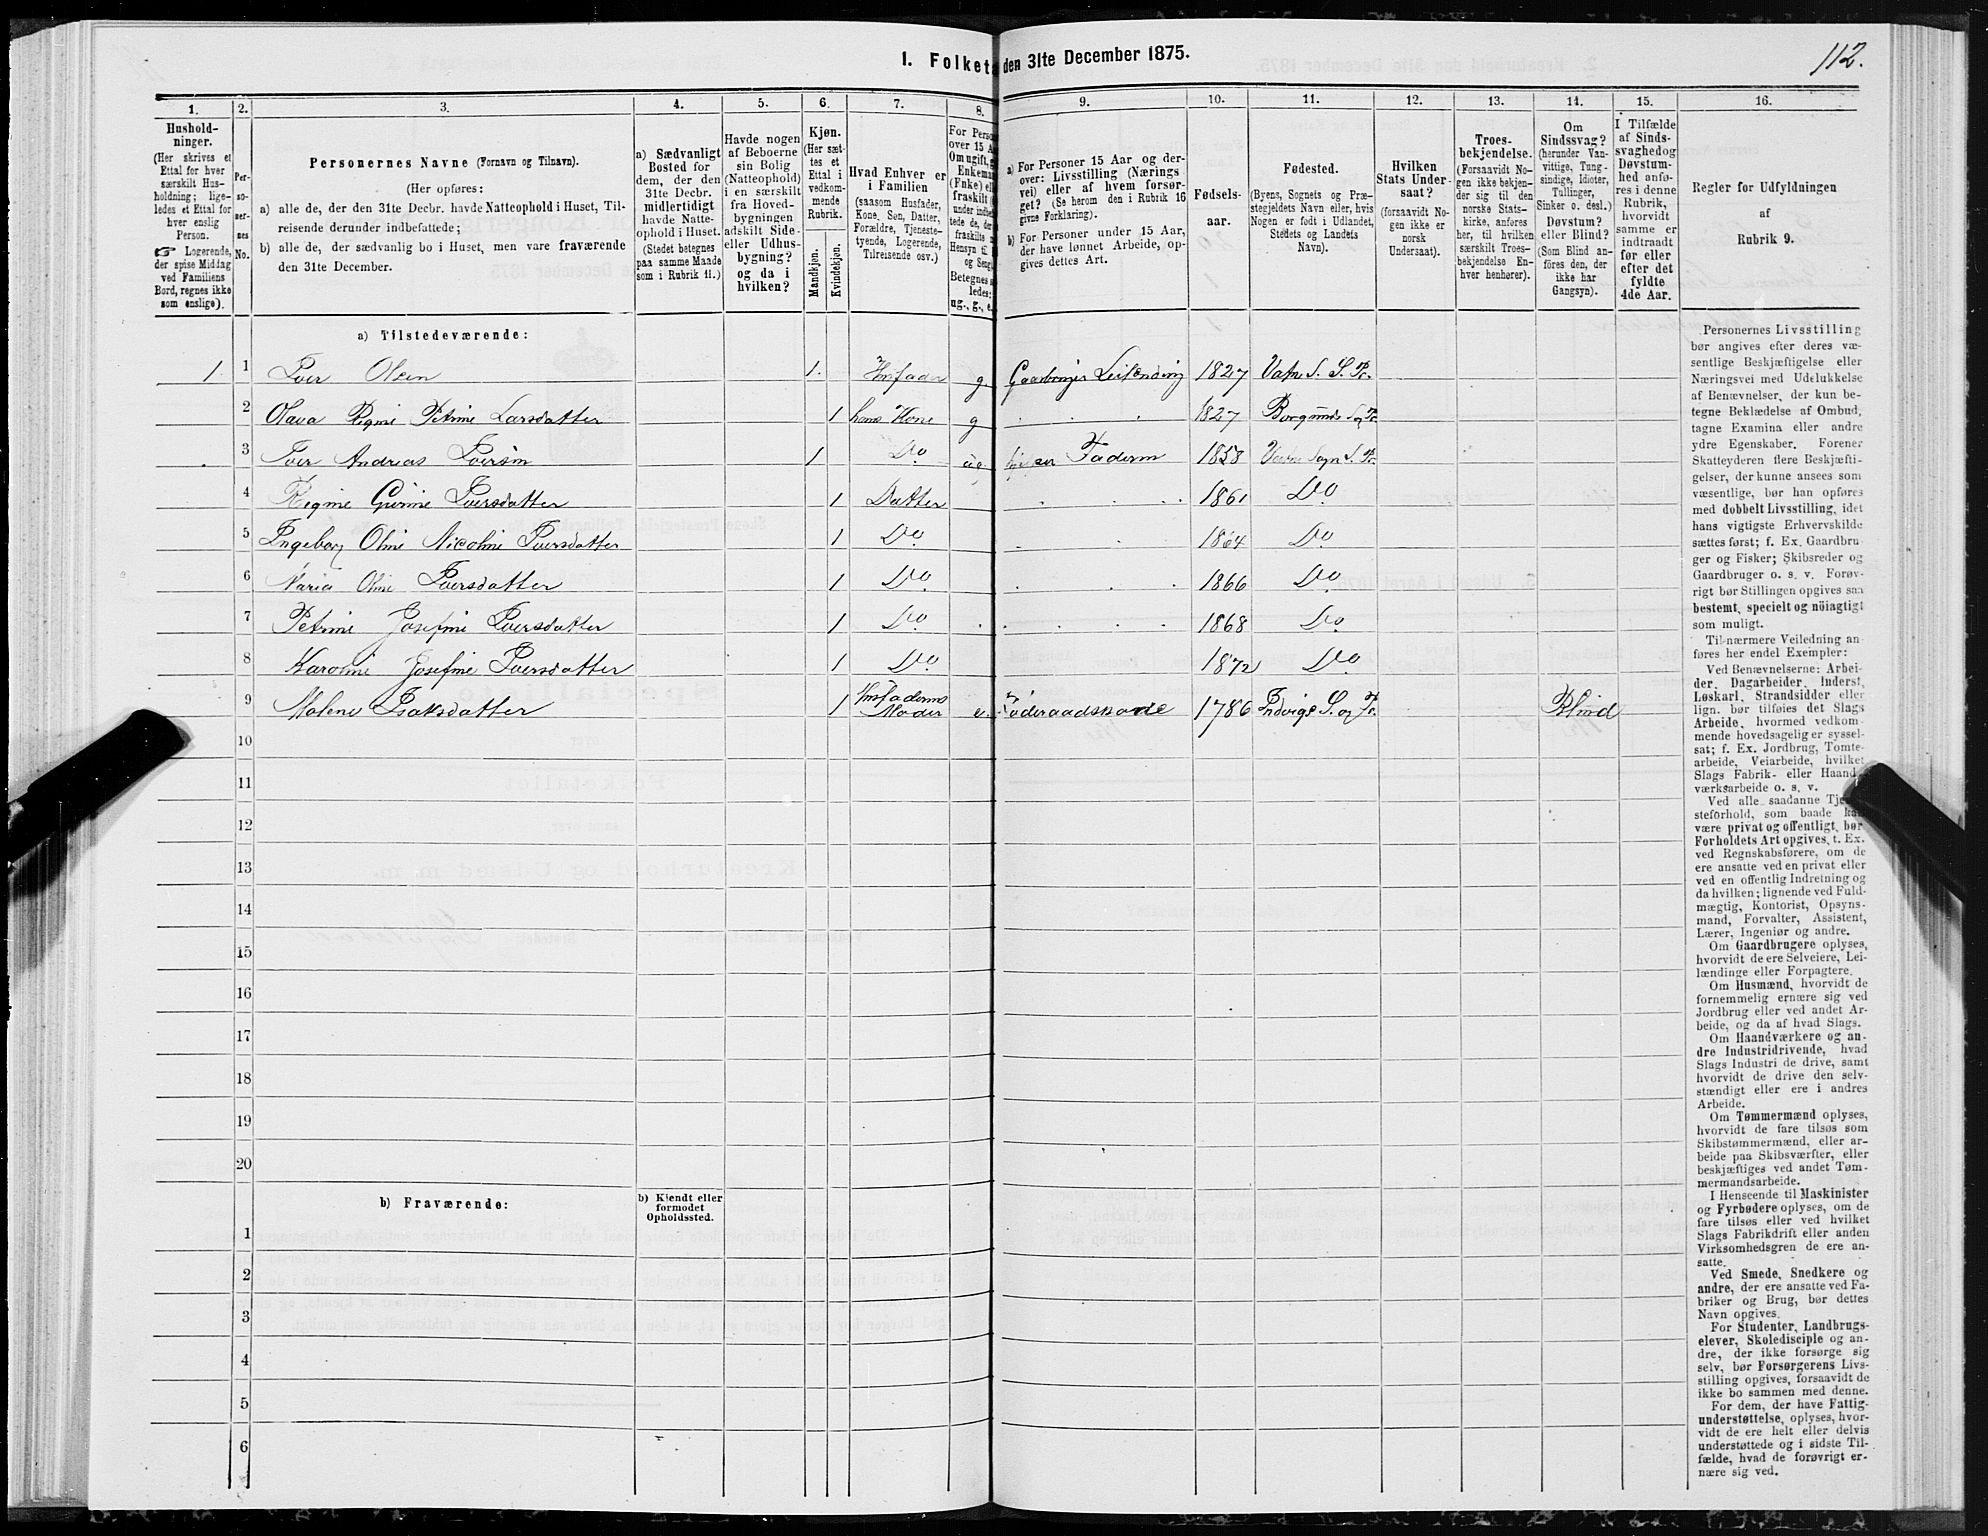 112.
1. Folket
den 31te December 1875.
1.
2.
3.
4.
5.
6.
7.
8.
9.
10.
11.
12.
13.
14.
15.
16.
Hushold-
ninger.
(Her skrives et
Ettal for hver
særskilt Hus-
holdning; lige-
ledes et Ettal for
hver enslig
Person.
☞ Logerende,
der spise Middag
ved Familiens
Bord, regnes ikke
som enslige).
Per-
so-
ner-
nes
No.
Personernes Navne (Fornavn og Tilnavn).
(Her opføres:
a) alle de, der den 31te Decbr. havde Natteophold i Huset, Til-
reisende derunder indbefattede;
b) alle de, der sædvanlig bo i Huset, men vare fraværende
den 31te December.
a) Sædvanligt
Bosted for
dem, der den
31te Decbr.
midlertidigt
havde Natte-
ophold i Huset.
(Stedet betegnes
paa samme Maade
som i Rubrik 11.)
Havde nogen
af Beboerne
sin Bolig
(Natteophold)
i en særskilt
fra Hoved-
bygningen
adskilt Side-
eller Udhus-
bygning?
og da i
hvilken?
Kjøn.
(Her sæt-
tes et
Ettal i
vedkom-
mende
Rubrik.
Mandkjøn.
Kvindekjøn.
Hvad Enhver er
i Familien
(saasom Husfader,
Kone, Søn, Datter,
Forældre, Tjeneste-
tyende, Logerende,
Tilreisende osv.)
For Perso
over 15 A
Om ugift, g
Enkema
(Fnke) el
fraskilt (
under indbe
tede de, der
fraskilte m
Hensyn til B
og Seng
Betegnes s
ledes:
ug., g., e.
a) For Personer 15 Aar og der-
over: Livsstilling (Nærings
vei) eller af hvem forsør-
get? (Se herom den i Rubrik 16
givne Forklaring).
b) For Personer under 15 Aar,
der have lønnet Arbeide, op-
gives dettes Art.
Fødsels-
aar.
Fødested.
(Byens, Sognets og Præ-
stegjeldets Navn eller, hvis
Nogen er født i Udlandet,
Stedets og Landets
Navn).
Hvilken
Stats Under-
saat?
(forsaavidt No-
gen ikke er
norsk
Undersaat).
Troes-
bekjendelse.
(Forsaavidt No-
gen ikke bekjen-
der sig til den
norske Stats-
kirke, anføres
her, til hvilken
særskilt Troes-
bekjendelse En-
hver henhører).
Om
Sindssvag?
(herunder Van-
vittige, Tung-
sindige, Idioter,
Tullinger,
Sinker o. desl.)
Døvstum?
eller Blind?
(Som Blind an-
føres den, der
ikke har
Gangsyn).
I Tilfælde
af Sinds-
svaghed og
Døvstum-
hed anfø-
res i denne
Rubrik,
hvorvidt
samme er
indtraadt
før eller
efter det
fyldte
4de Aar.
Regler for Udfyldningen
af
Rubrik 9.
a) Tilstedeværende:
1 1 Poer Olsen 1. Husfader g Gaardbruger Leilending 1827 Vatne S. S. Pr.
2 Olava Regine Petrine Larsdatter 1 hans Kone g 1827 Borgunds S og Pr
3 Poer Andreas Poersøn 1 Do ug. Faderen 1858 Vatne Sogn S. Pr.
4 Regine Gurine Poersdatter 1 Datter 1861 Do
5 Ingeborg Oline Nicoline Poersdatter 1 Do 1864 Do
6 Maria Oline Poersdatter 1 Do 1866 Do
7 Petrine Josefine Poersdatter 1 Do 1868 Do
8 Karoline Josefine Poersdatter 1 Do 1872 Do
9 Malene Isaksdatter 1 Husfaderens Moder e. Føderaadskone 1786 Indvigs S. og Pr. Blind
10
11
12
13
14
15
16
17
18
19
20
b) Fraværende:
b) Kjendt eller
formodet
Opholdssted.
1
2
3
4
5
6
Personernes Livsstilling
bør angives efter deres væ-
sentlige Beskjæftigelse eller
Næringsvei med Udelukkelse
af Benævnelser, der kun be-
tegne Beklædelse af Ombud,
tagne Examina eller andre
ydre Egenskaber. Forener
Skatteyderen flere Beskjæfti-
gelser, der kunne ansees som
væsentlige, bør han opføres
med dobbelt Livsstilling, idet
hans vigtigste Erhvervskilde
sættes først; f. Ex. Gaardbru-
ger og Fisker; Skibsreder og
Gaardbruger o. s. v. Forøv-
rigt bør Stillingen opgives saa
bestemt, specielt og nöiagtigt
som muligt.
Til nærmere Veiledning an-
føres her endel Exempler:
Ved Benævnelserne: Arbei-
der, Dagarbeider, Inderst,
Løskarl, Strandsidder eller
lign. bør tilføies det Slags
Arbeide, hvormed vedkom-
mende hovedsagelig er syssel-
sat; f. Ex. Jordbrug, Tomte-
arbeide, Veiarbeide, hvilket
Slags Fabrik- eller Haand-
værksarbeide o. s. v.
Ved alle saadanne Tje
steforhold, som baade kan
være privat og offentligt, bør
Forholdets Art opgives, t. Ex.
ved Regnskabsførere, om de
ere ansatte ved en privat eller
ved en offentlig Indretning og
da hvilken; lignende ved Fuld-
mægtig, Kontorist, Opsyns-
mand, Forvalter, Assistent,
Lærer, Ingeniør og andre.
Om Gaardbrugere oplyses,
hvorvidt de ere Selveiere, Lei-
lændinge eller Forpagtere.
Om Husmænd, hvorvidt de
fornemmelig ernære sig ved
Jordbrug eller ved andet Ar-
beide, og da af hvad Slags.
Om Haandværkere og an-
dre Industridrivende, hvad
Slags Industri de drive, samt
hvorvidt de drive den selv-
stændigt eller ere i andres
Arbeide.
Om Tømmermænd oplyses,
hvorvidt de fare tilsøs som
Skibstømmermænd, eller ar-
beide paa Skibsværfter, eller
beskjæftiges ved andet Tøm-
mermandsarbeide.
I Henseende til Maskinister
og Fyrbødere oplyses, om de
fare tilsøs eller ved hvilket
Slags Fabrikdrift eller anden
Virksomhedsgren de ere an-
satte.
Ved Smede, Snedkere og
andre, der ere ansatte ved Fa-
briker og Brug, bør dettes
Navn opgives.
For Studenter, Landbrugs-
elever, Skoledisciple og an-
dre, der ikke forsørge sig
selv, bør Forsørgerens Livs-
stilling opgives, forsaavidt de
ikke bo sammen med denne.
For dem, der have Fattig-
understøttelse, oplyses, hvor-
vidt de ere helt eller delvis
understøttede og i sidste Til-
fælde, hvad de forøvrigt er-
nære sig ved.